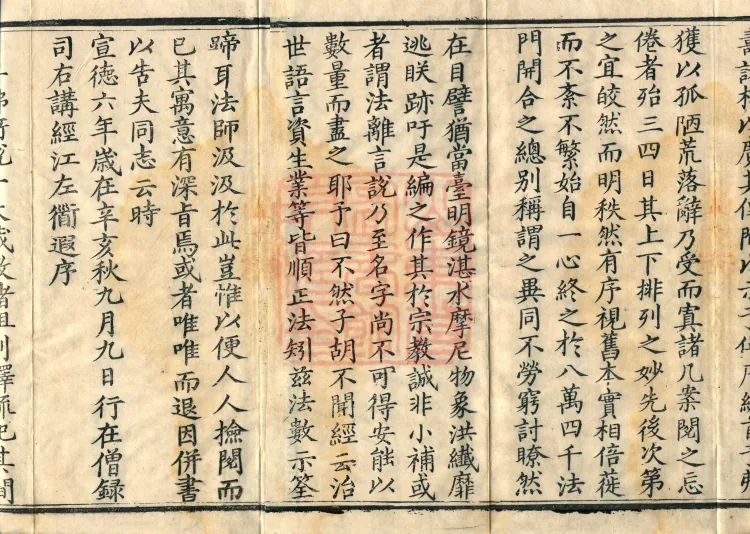 獲以孤陋荒落辭乃受而寘諸几案閱之忘
倦者殆三四日其上下排列之妙先後次第
之宜皎然而明秩然有序視舊本實相倍蓰
而不紊不繁始自一心終之於八萬四千法
門開合之總別稱謂之異同不勞窮討瞭然
在目譬猶當臺明鏡湛水摩尼物象洪纖靡
逃眹跡吁是編之作其於宗教誠非小補或
者謂法離言說乃至名字尚不可得安能以
數量而盡之耶予曰不然子胡不聞經云治
世語言資生業等皆順正法矧茲法數示筌
蹄耳法師汲汲於此豈惟以便人人撿閱而
已其寓意有深旨焉或者唯唯而退因併書
以告夫同志云時
宣徳六年歲在辛亥秋九月九日行在僧録
司右講經江左衟遐序